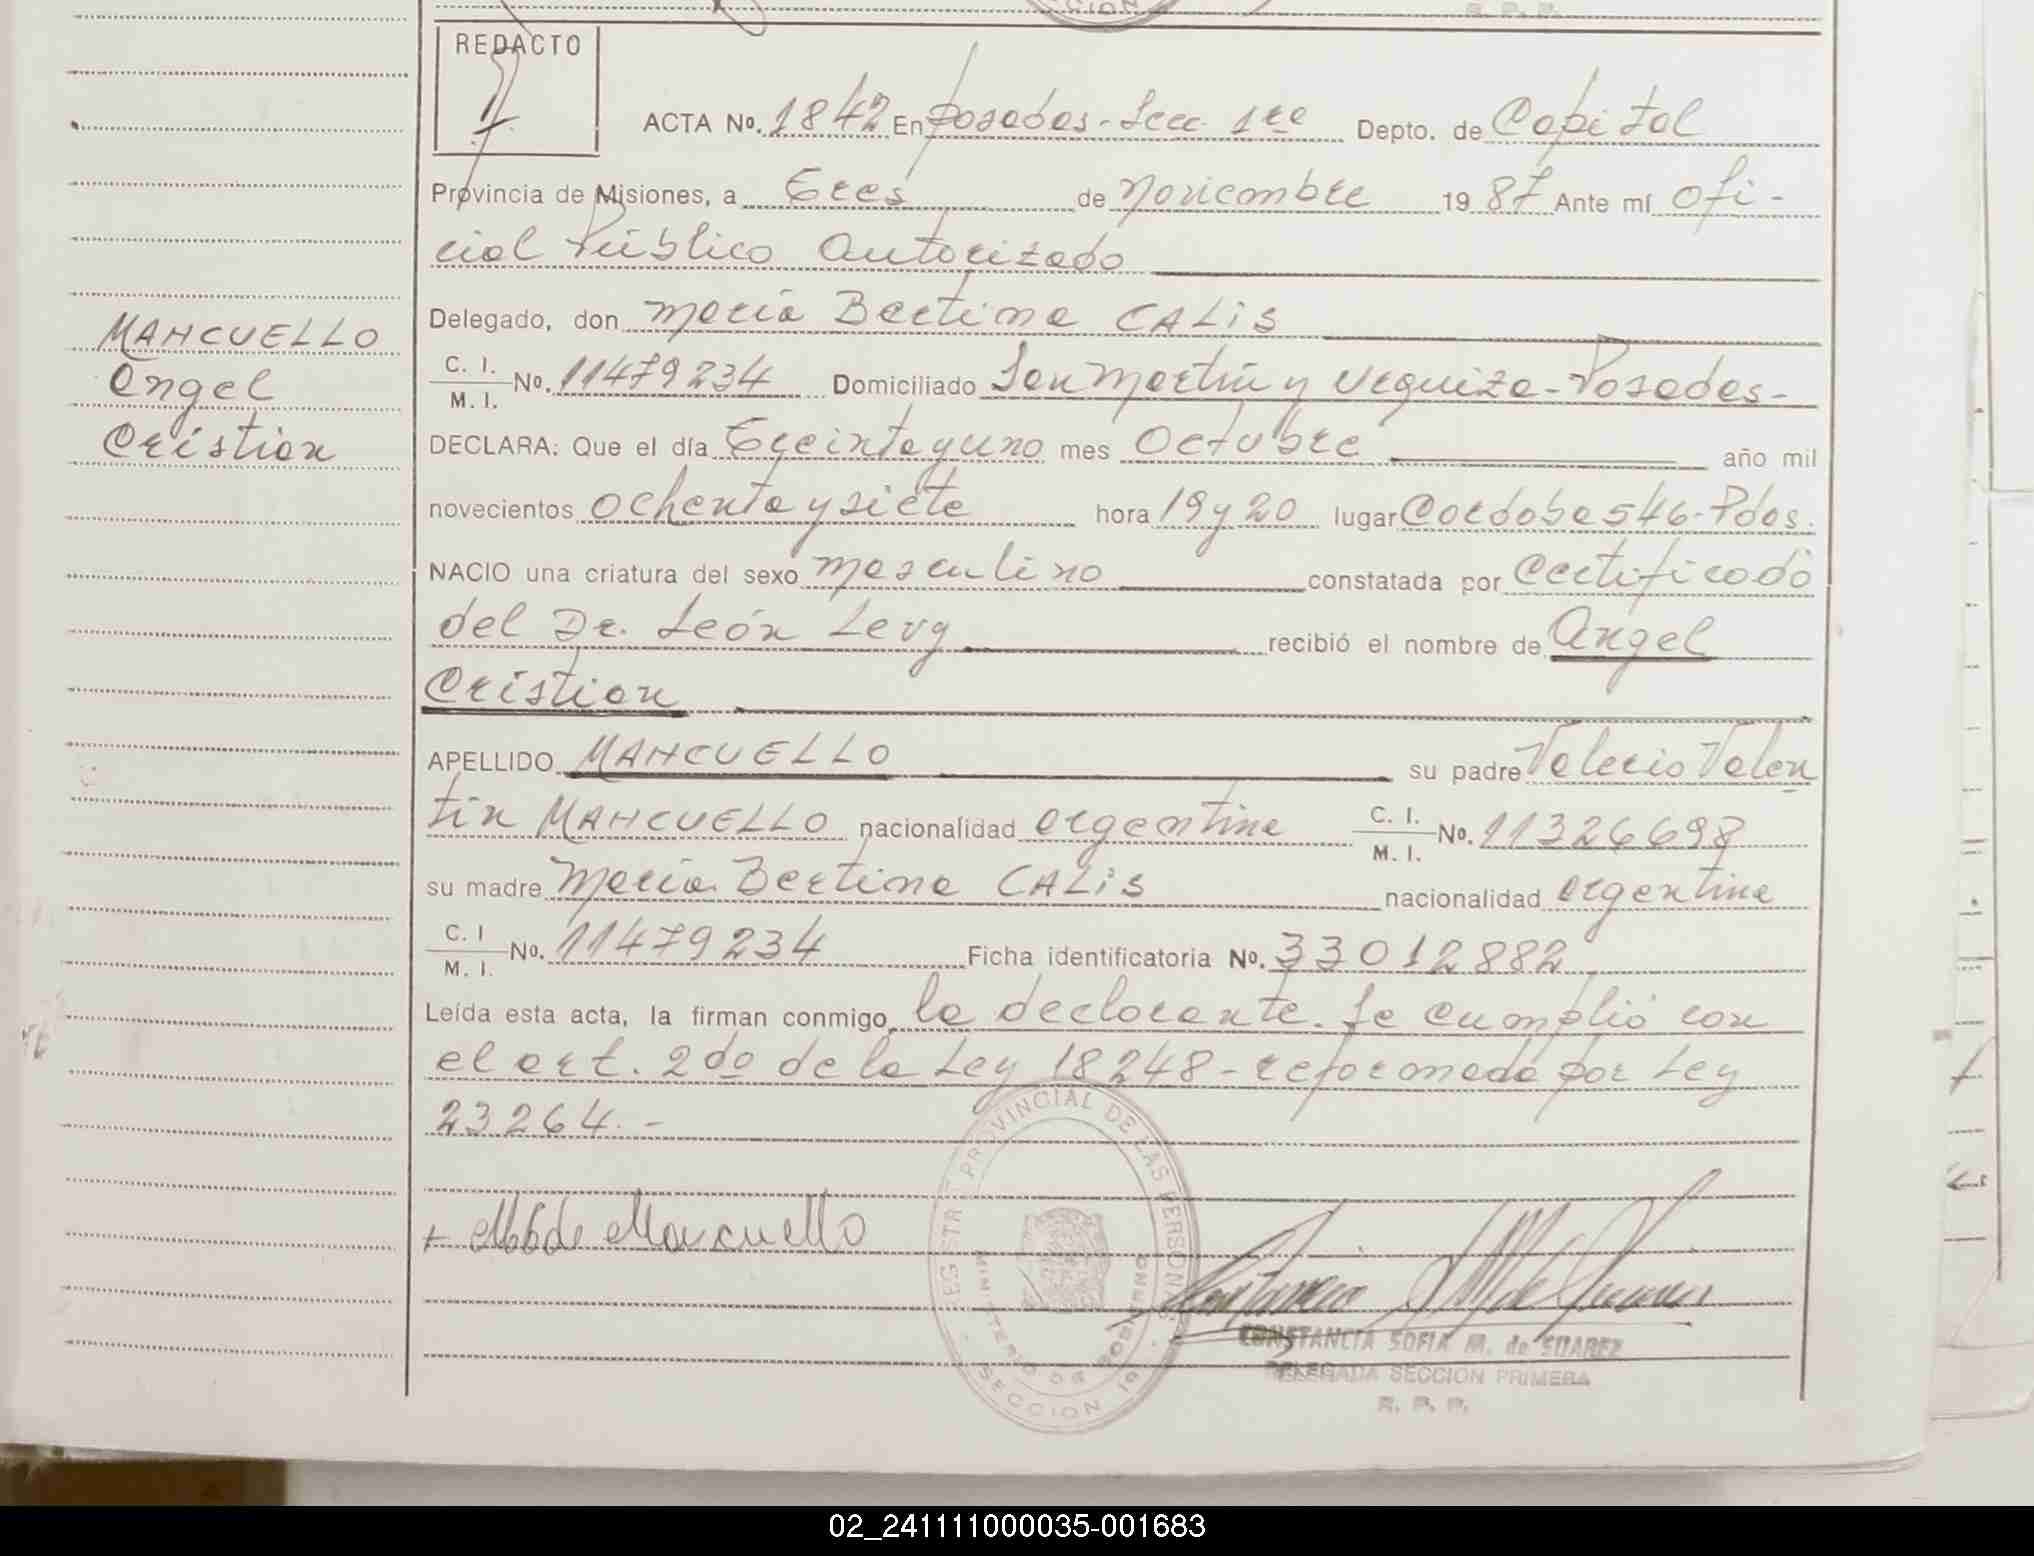 REDACTO
ACTA Nº. 1842 En Posadas-Secc. 1ra Depto. de Capital
Provincia de Misiones, a tres de noviembre 1987 Ante mí ofi-
cial Público Autorizado
Delegado, don María Bertina CALIS
MANCUELLO
Angel
Cristian
C. I. M. I. Nº. 11479234 Domiciliado San Martín y Urquiza-Posadas-
DECLARA: Que el día treinta y uno mes Octubre año mil
novecientos ochenta y siete hora 19 y 20 lugar Córdoba 546-Pdas.
NACIO una criatura del sexo masculino constatada por certificado
del Dr. León Levy recibió el nombre de Angel
Cristian
APELLIDO MANCUELLO su padre Valerio Valen
tín MANCUELLO nacionalidad argentina C. I. M. I. Nº. 11326698
su madre María Bertina CALIS nacionalidad argentina
C. I M. I. Nº. 11479234 Ficha identificatoria Nº. 33012882
Leída esta acta, la firman conmigo, la declarante. Se cumplió con
el art. 2do de la Ley 18248-reformada por Ley
23264.-
REGISTRO PROVINCIAL DE LAS PERSONAS
MINISTERIO DE GOBIERNO
SECCION 1a
de Mancuello
CONSTANCIA SOFIA M. de SUAREZ
DELEGADA SECCION PRIMERA
R. P. P.
02_241111000035-001683